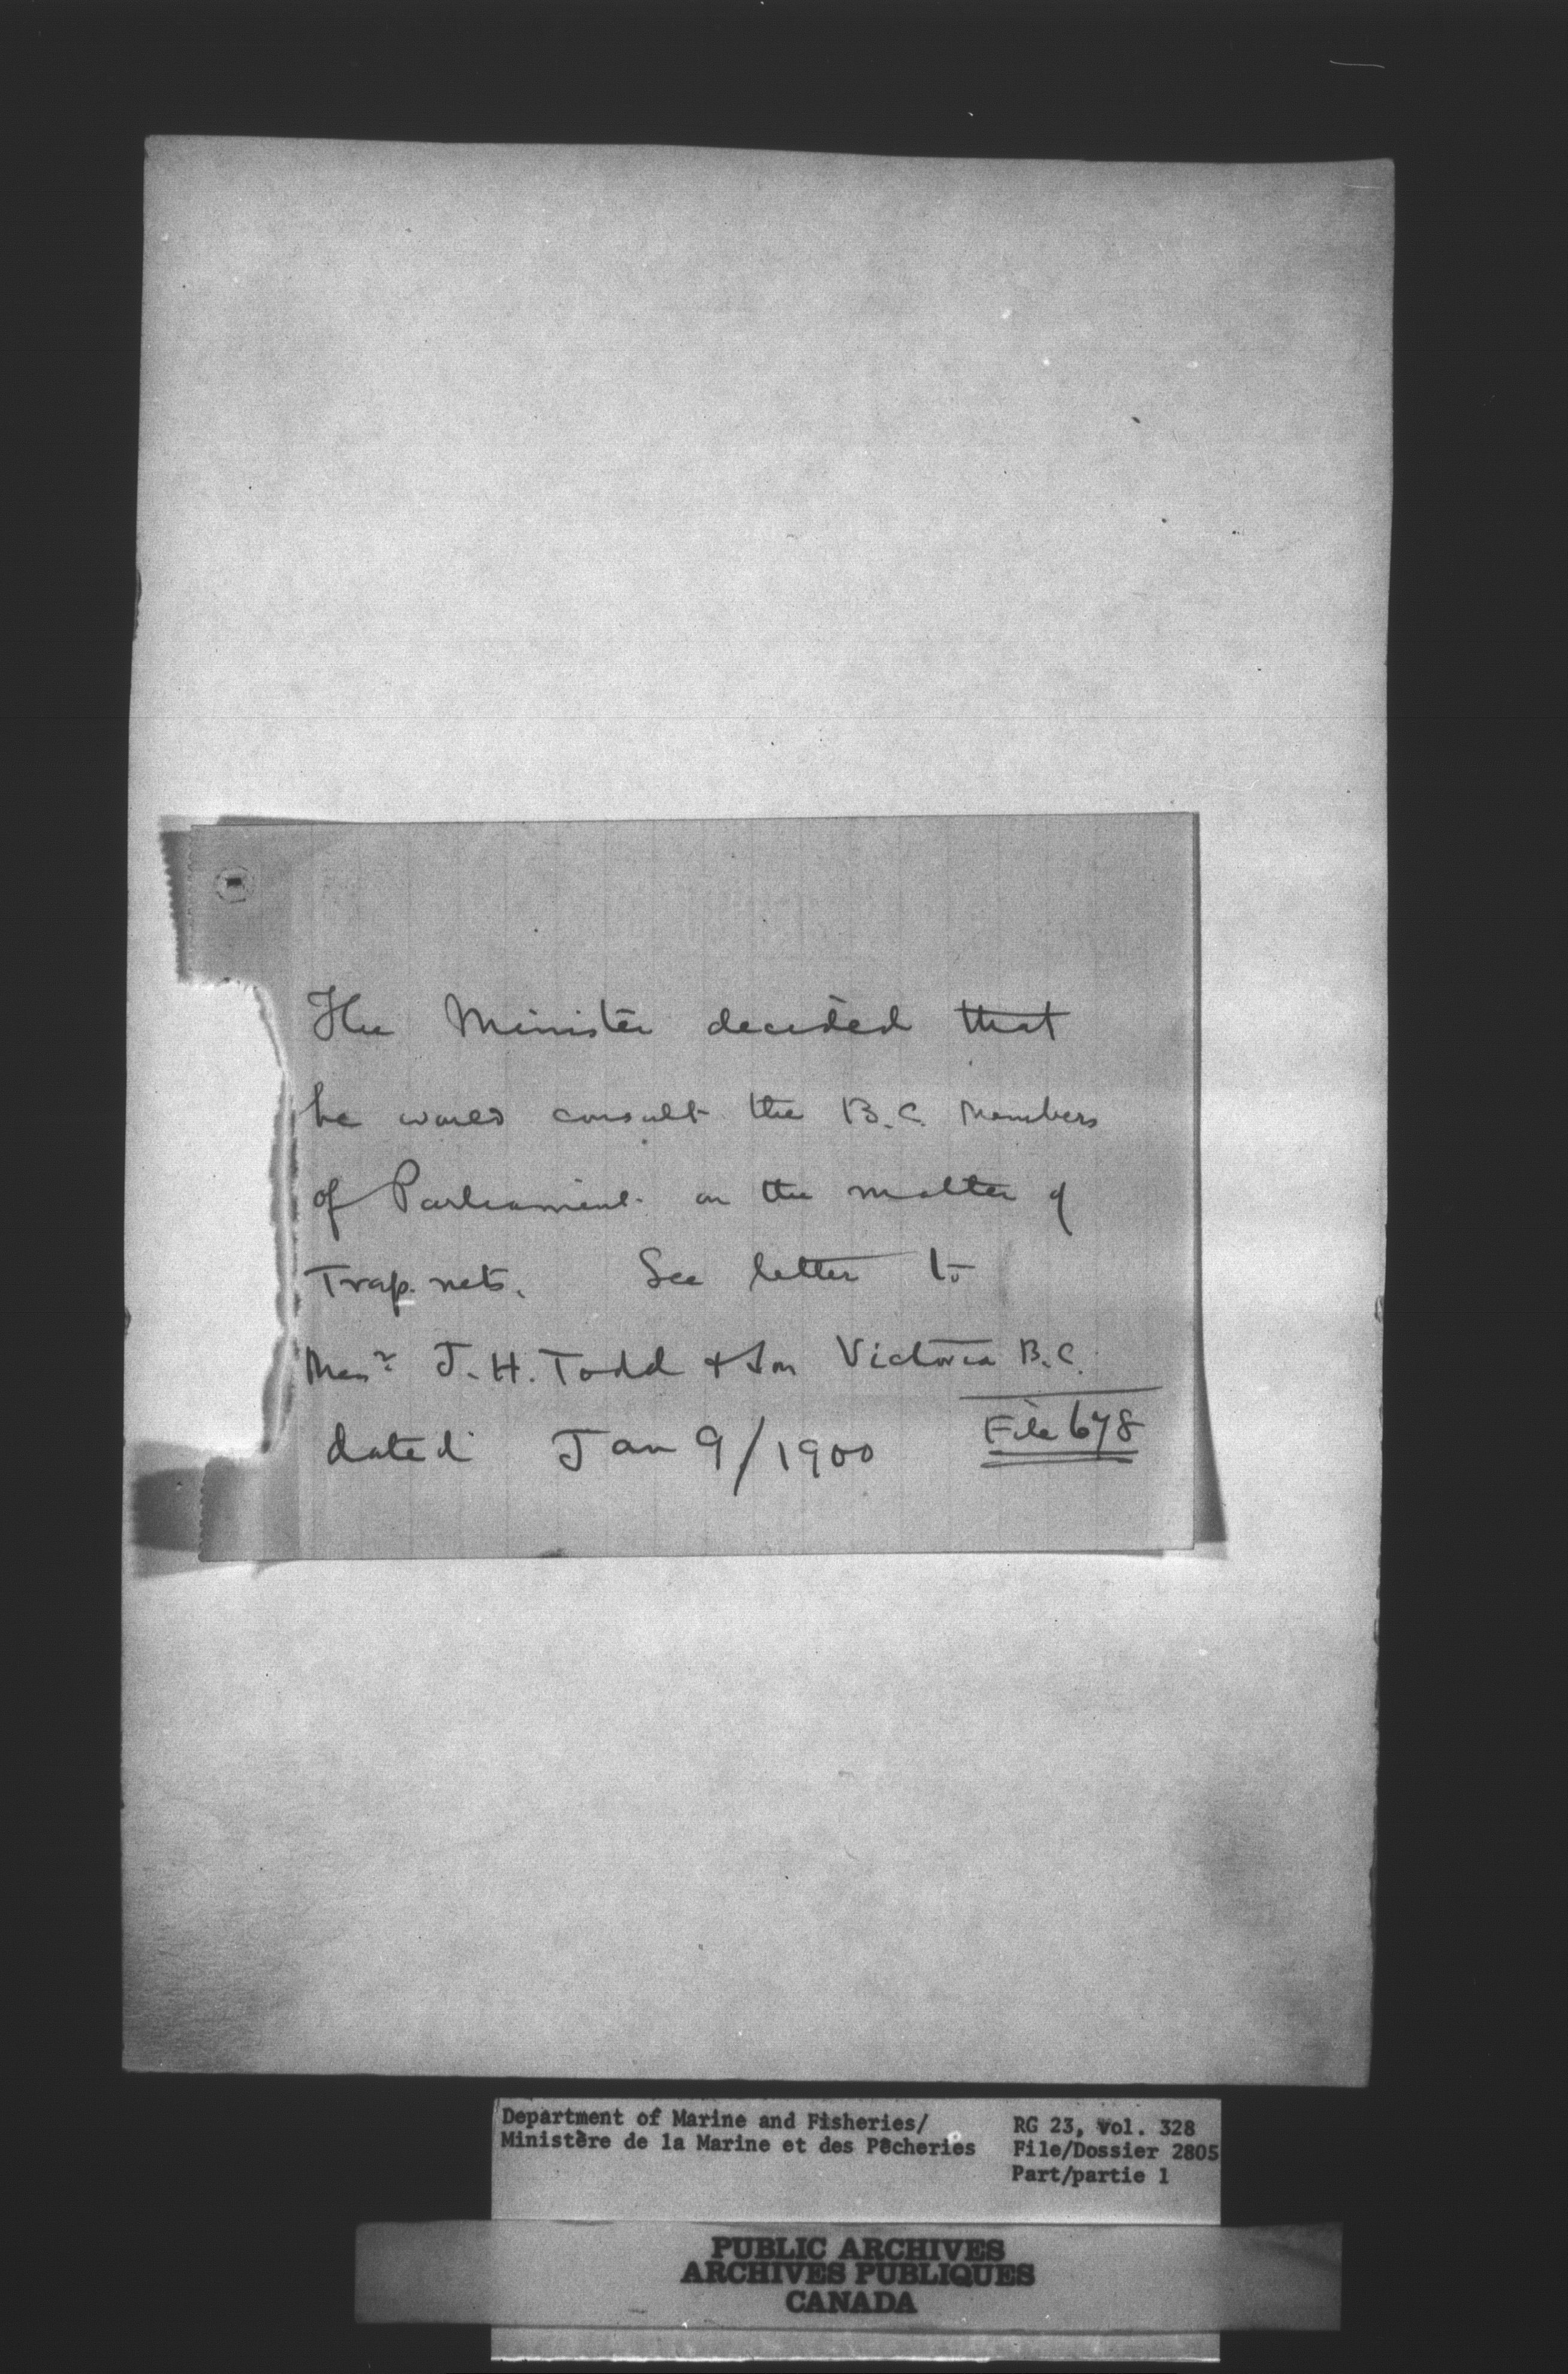 The Minister decided that
he would consult the B.C. Members
of Parliament on the matter of
Trap nets. See letter to
Messrs J. H. Todd & Son Victoria B.C.
dated Jan 9/1900 File 678
Department of Marine and Fisheries/ RG 23, Vol. 328
Ministère de la Marine et des Pêcheries File/Dossier 2805
Part/partie 1
PUBLIC ARCHIVES
ARCHIVES PUBLIQUES
CANADA